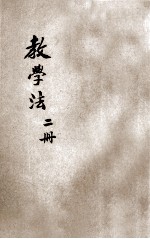 教學法二冊